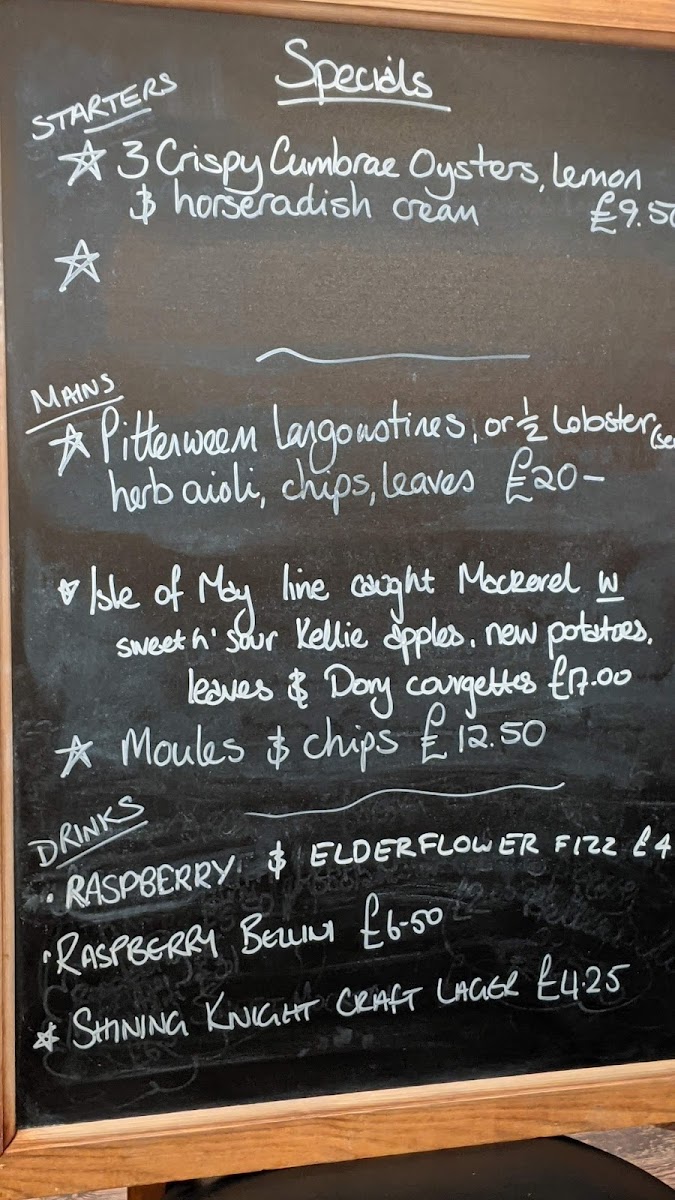 Specials
STARTERS
☆ 3 Crispy Cumbrae Oysters, lemon
& horseradish cream £9.50
☆
MAINS
☆ Pittenweem Langoustines, or ½ Lobster (se
herb aioli, chips, leaves £20-
☆ Isle of May line caught Mackerel w
sweet n' sour Kellie apples, new potatoes,
leaves & Dory courgettes £17.00
☆ Moules & chips £12.50
DRINKS
· RASPBERRY & ELDERFLOWER FIZZ £4
· RASPBERRY BELLINI £6.50
☆ SHINING KNIGHT CRAFT LAGER £4.25